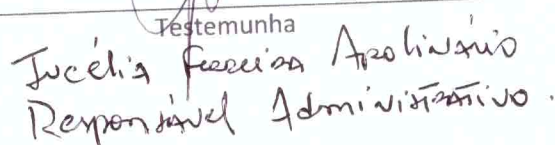 Testemunha
Jucélia Ferreira Apolinário
Responsável Administrativo.